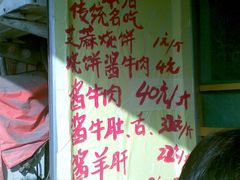 传统名吃
芝麻烧饼 1元/个
烧饼酱牛肉 4元
酱牛肉 40元/斤
酱牛肚、舌、 元/斤
酱羊肝 元/斤